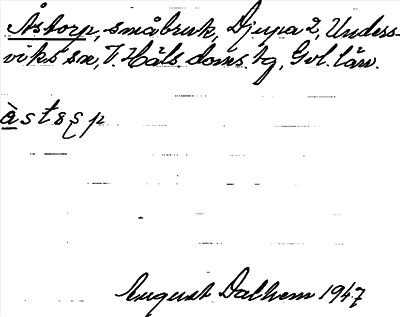 Åstorp, småbruk, Djupa 2, Unders-
viks sn, V. Häls. doms. tg, Gvl. län.
àstsp
August Dalhem 1947